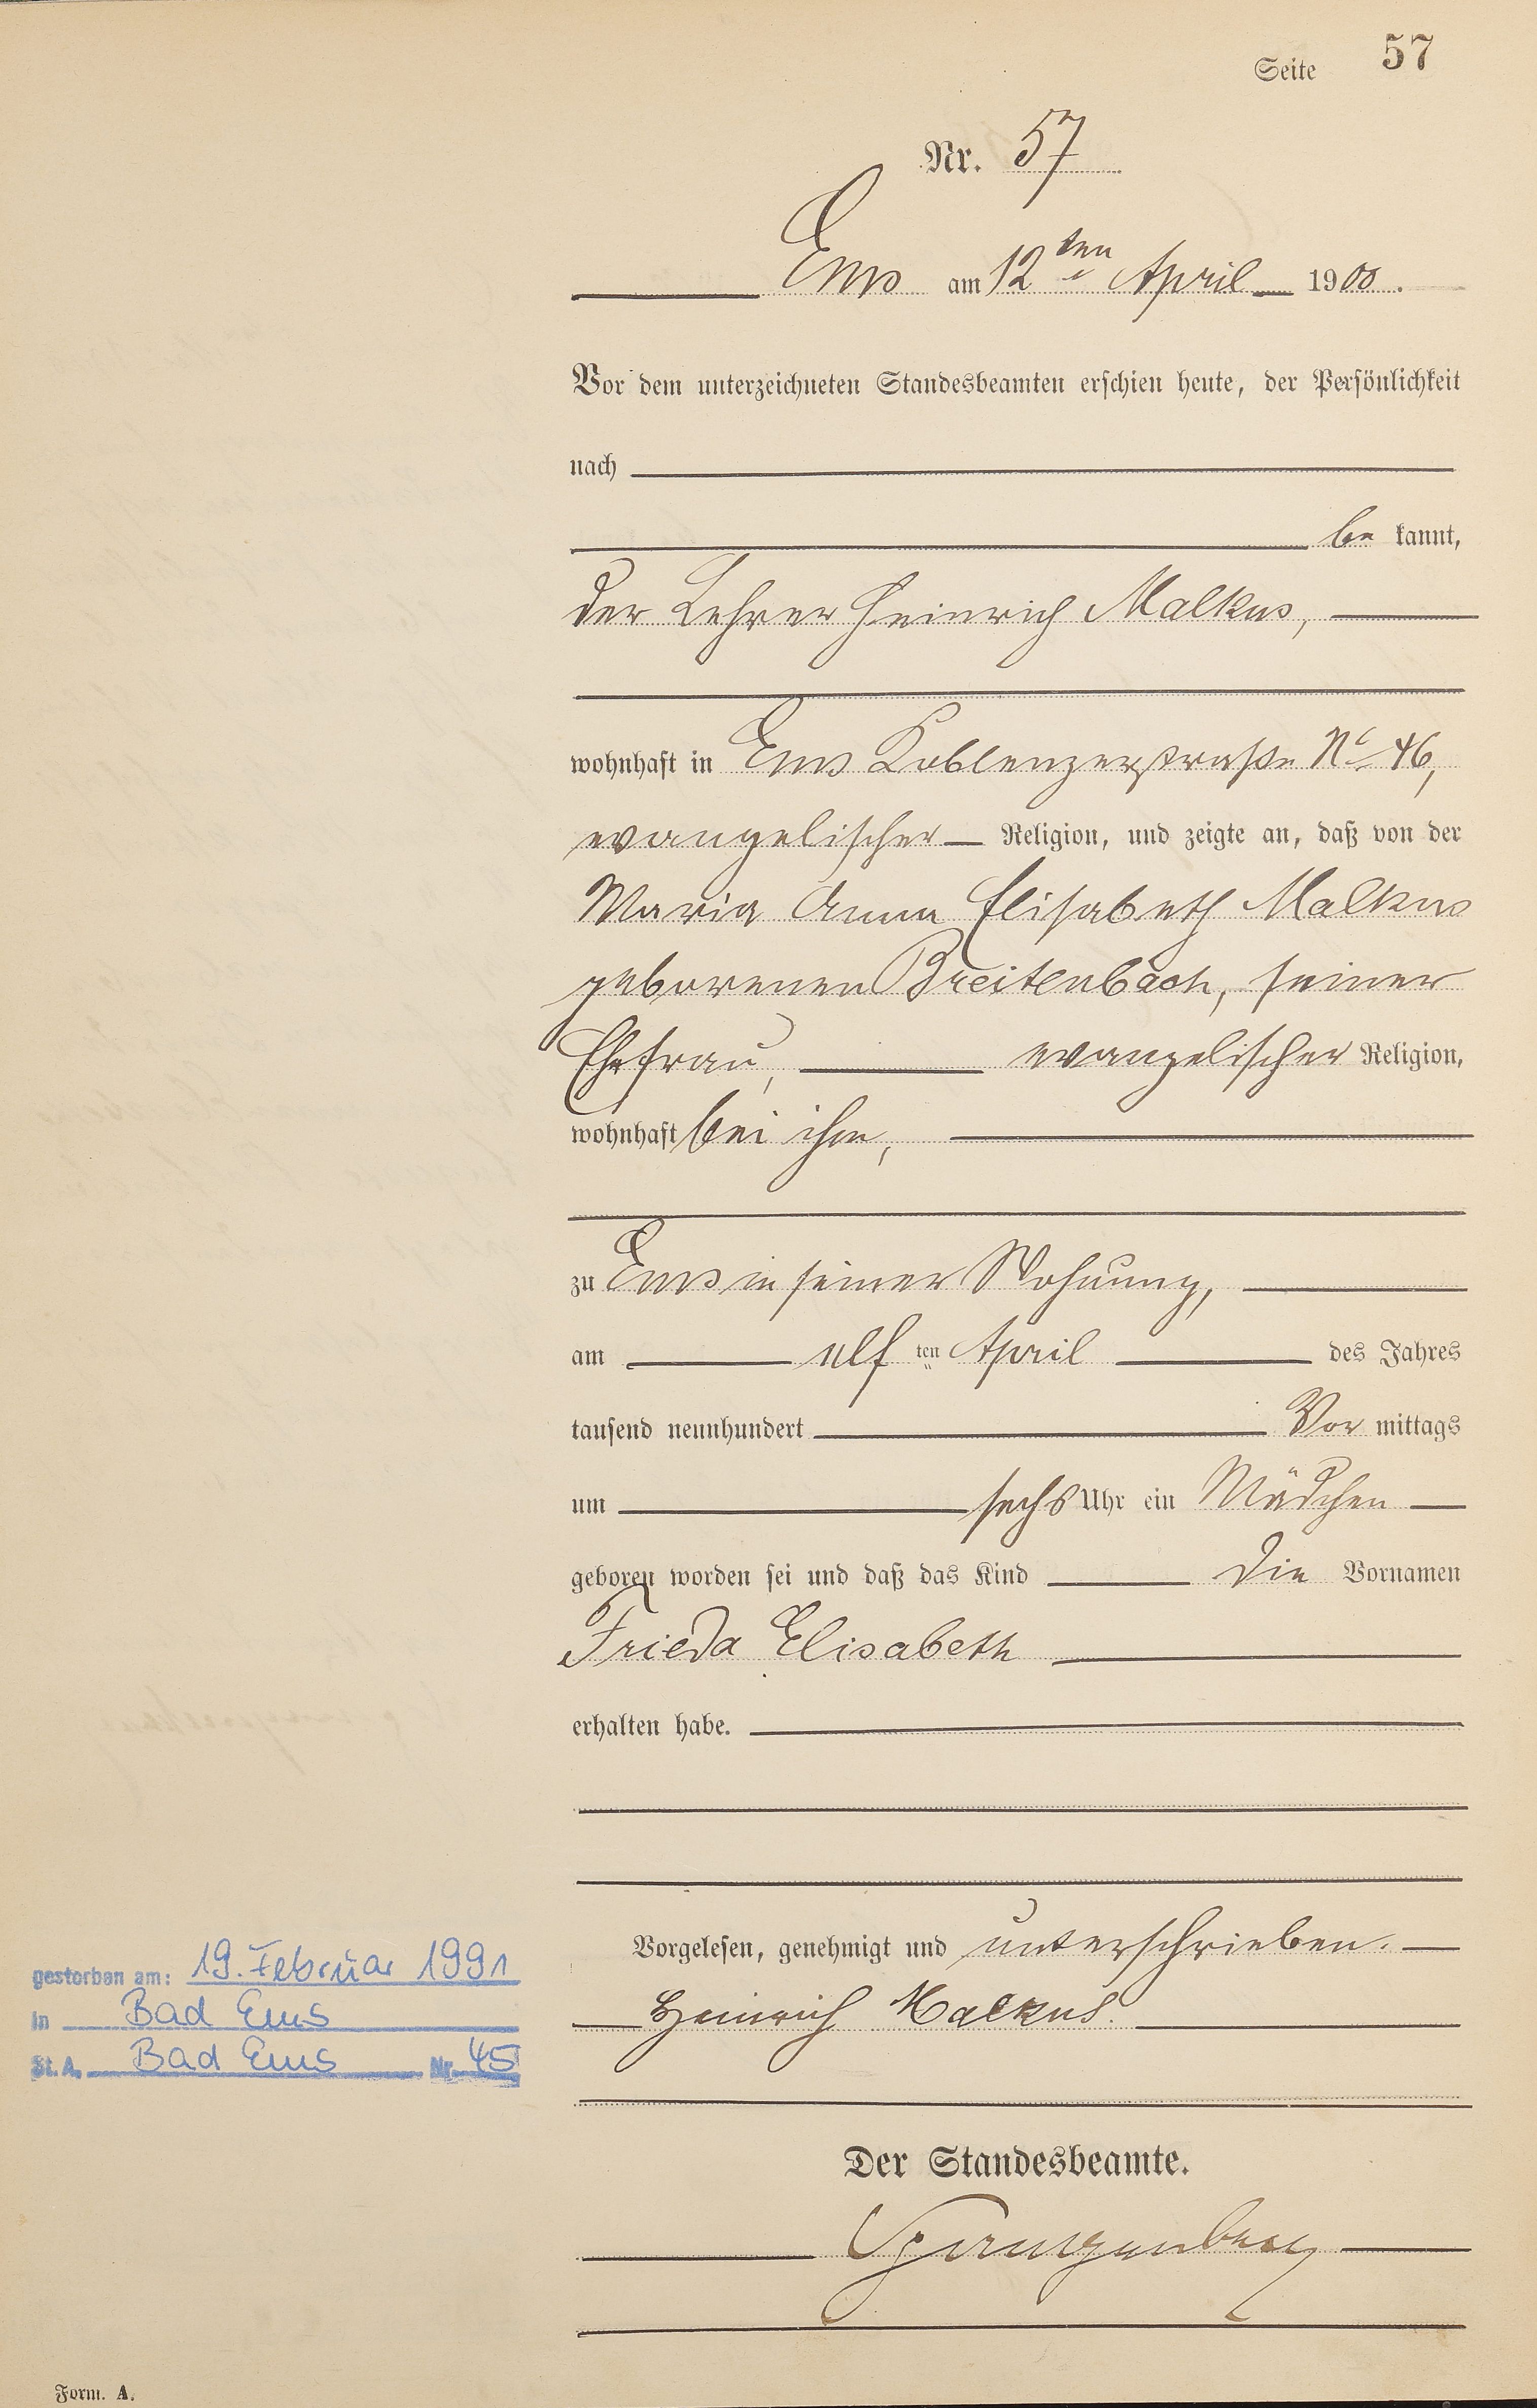 Seite 57
Nr. 57
Ems am 12ten April 1900.
Vor dem unterzeichneten Standesbeamten erschien heute, der Persönlichkeit
nach
be kannt,
der Lehrer Heinrich Malkus,
wohnhaft in Ems Koblenzerstraße No 46,
evangelischer Religion, und zeigte an, daß von der
Maria Anna Elisabeth Malkus
geborenen Breitenbach, seiner
Ehefrau, evangelischer Religion,
wohnhaft bei ihm,
zu Ems in seiner Wohnung,
am elf ten April des Jahres
tausend neunhundert Vor mittags
um sechs Uhr ein Mädchen
geboren worden sei und daß das Kind die Vornamen
Frieda Elisabeth
erhalten habe.
Vorgelesen, genehmigt und unterschrieben.
Heinrich Malkus.
gestorben am: 19. Februar 1991
in Bad Ems
St. A. Bad Ems Nr. 45
Der Standesbeamte.
Spangenberg
Form. A.